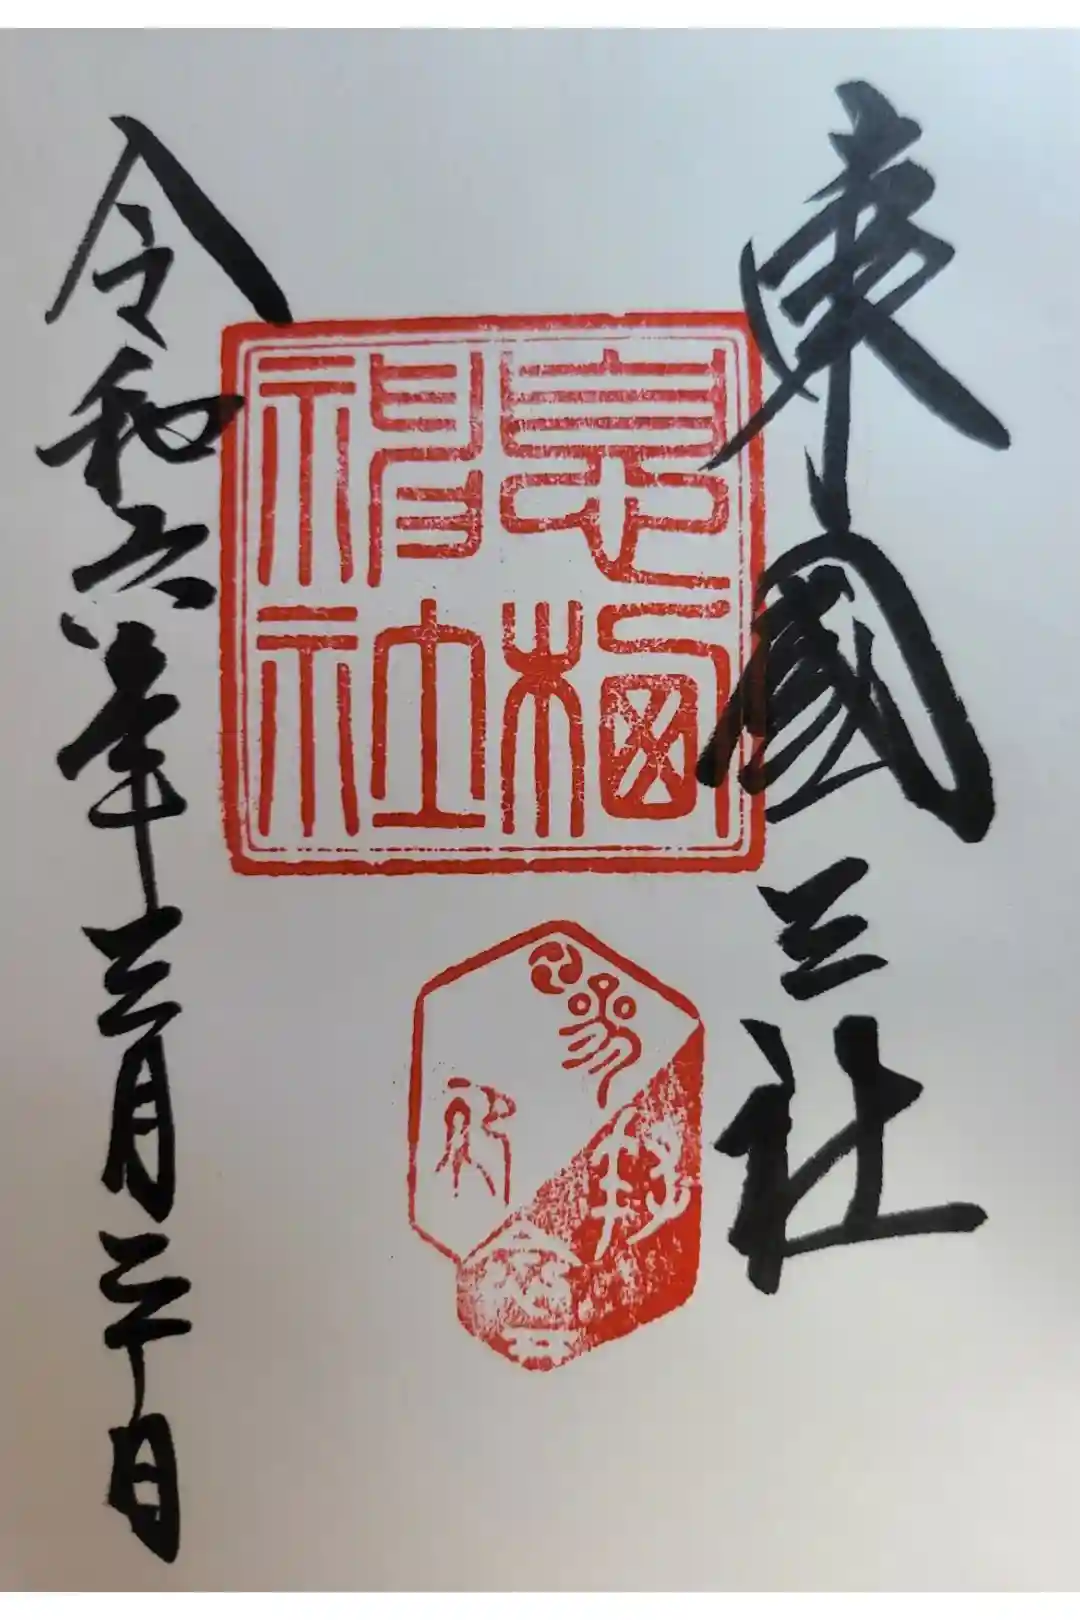 東國三社
息栖神社
参拝
令和六年三月二十日